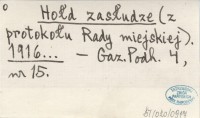 Hołd zasłudze (z
protokołu Rady miejskiej).
1916... – Gaz. Podh. 4,
nr 15.